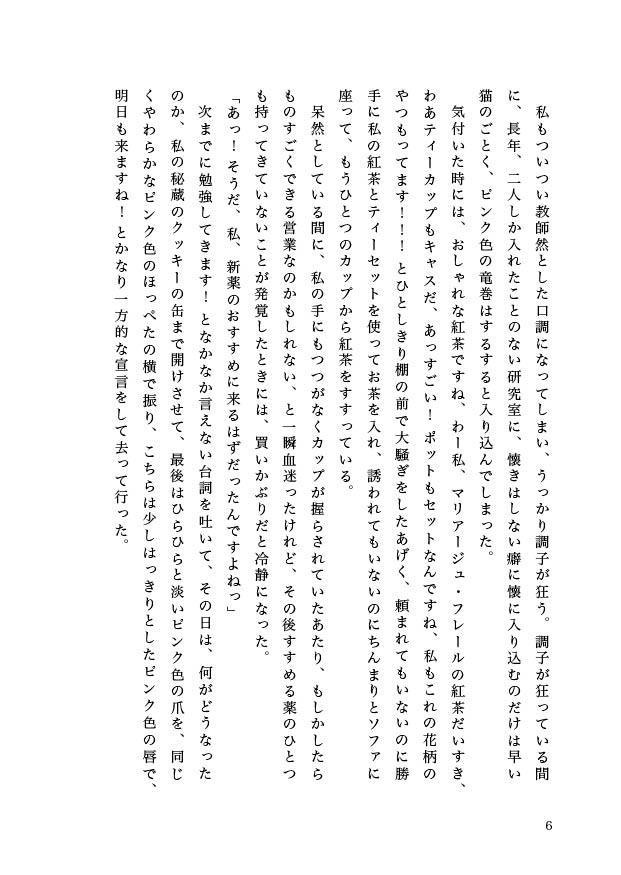 私もついつい教師然とした口調になってしまい、うっかり調子が狂う。調子が狂っている間
に、長年、二人しか入れたことのない研究室に、懐きはしない癖に懐に入り込むのだけは早い
猫のごとく、ピンク色の竜巻はするすると入り込んでしまった。
　気付いた時には、おしゃれな紅茶ですね、わー私、マリアージュ・フレールの紅茶だいすき、
わあティーカップもキャスだ、あっすごい！ポットもセットなんですね、私もこれの花柄の
やつもってます！！！とひとしきり棚の前で大騒ぎをしたあげく、頼まれてもいないのに勝
手に私の紅茶とティーセットを使ってお茶を入れ、誘われてもいないのにちんまりとソファに
座って、もうひとつのカップから紅茶をすすっている。
　呆然としている間に、私の手にもつつがなくカップが握らされていたあたり、もしかしたら
ものすごくできる営業なのかもしれない、と一瞬血迷ったけれど、その後すすめる薬のひとつ
も持ってきていないことが発覚したときには、買いかぶりだと冷静になった。
「あっ！そうだ、私、新薬のおすすめに来るはずだったんですよねっ」
　次までに勉強してきます！となかなか言えない台詞を吐いて、その日は、何がどうなった
のか、私の秘蔵のクッキーの缶まで開けさせて、最後はひらひらと淡いピンク色の爪を、同じ
くやわらかなピンク色のほっぺたの横で振り、こちらは少しはっきりとしたピンク色の唇で、
明日も来ますね！とかなり一方的な宣言をして去って行った。
6